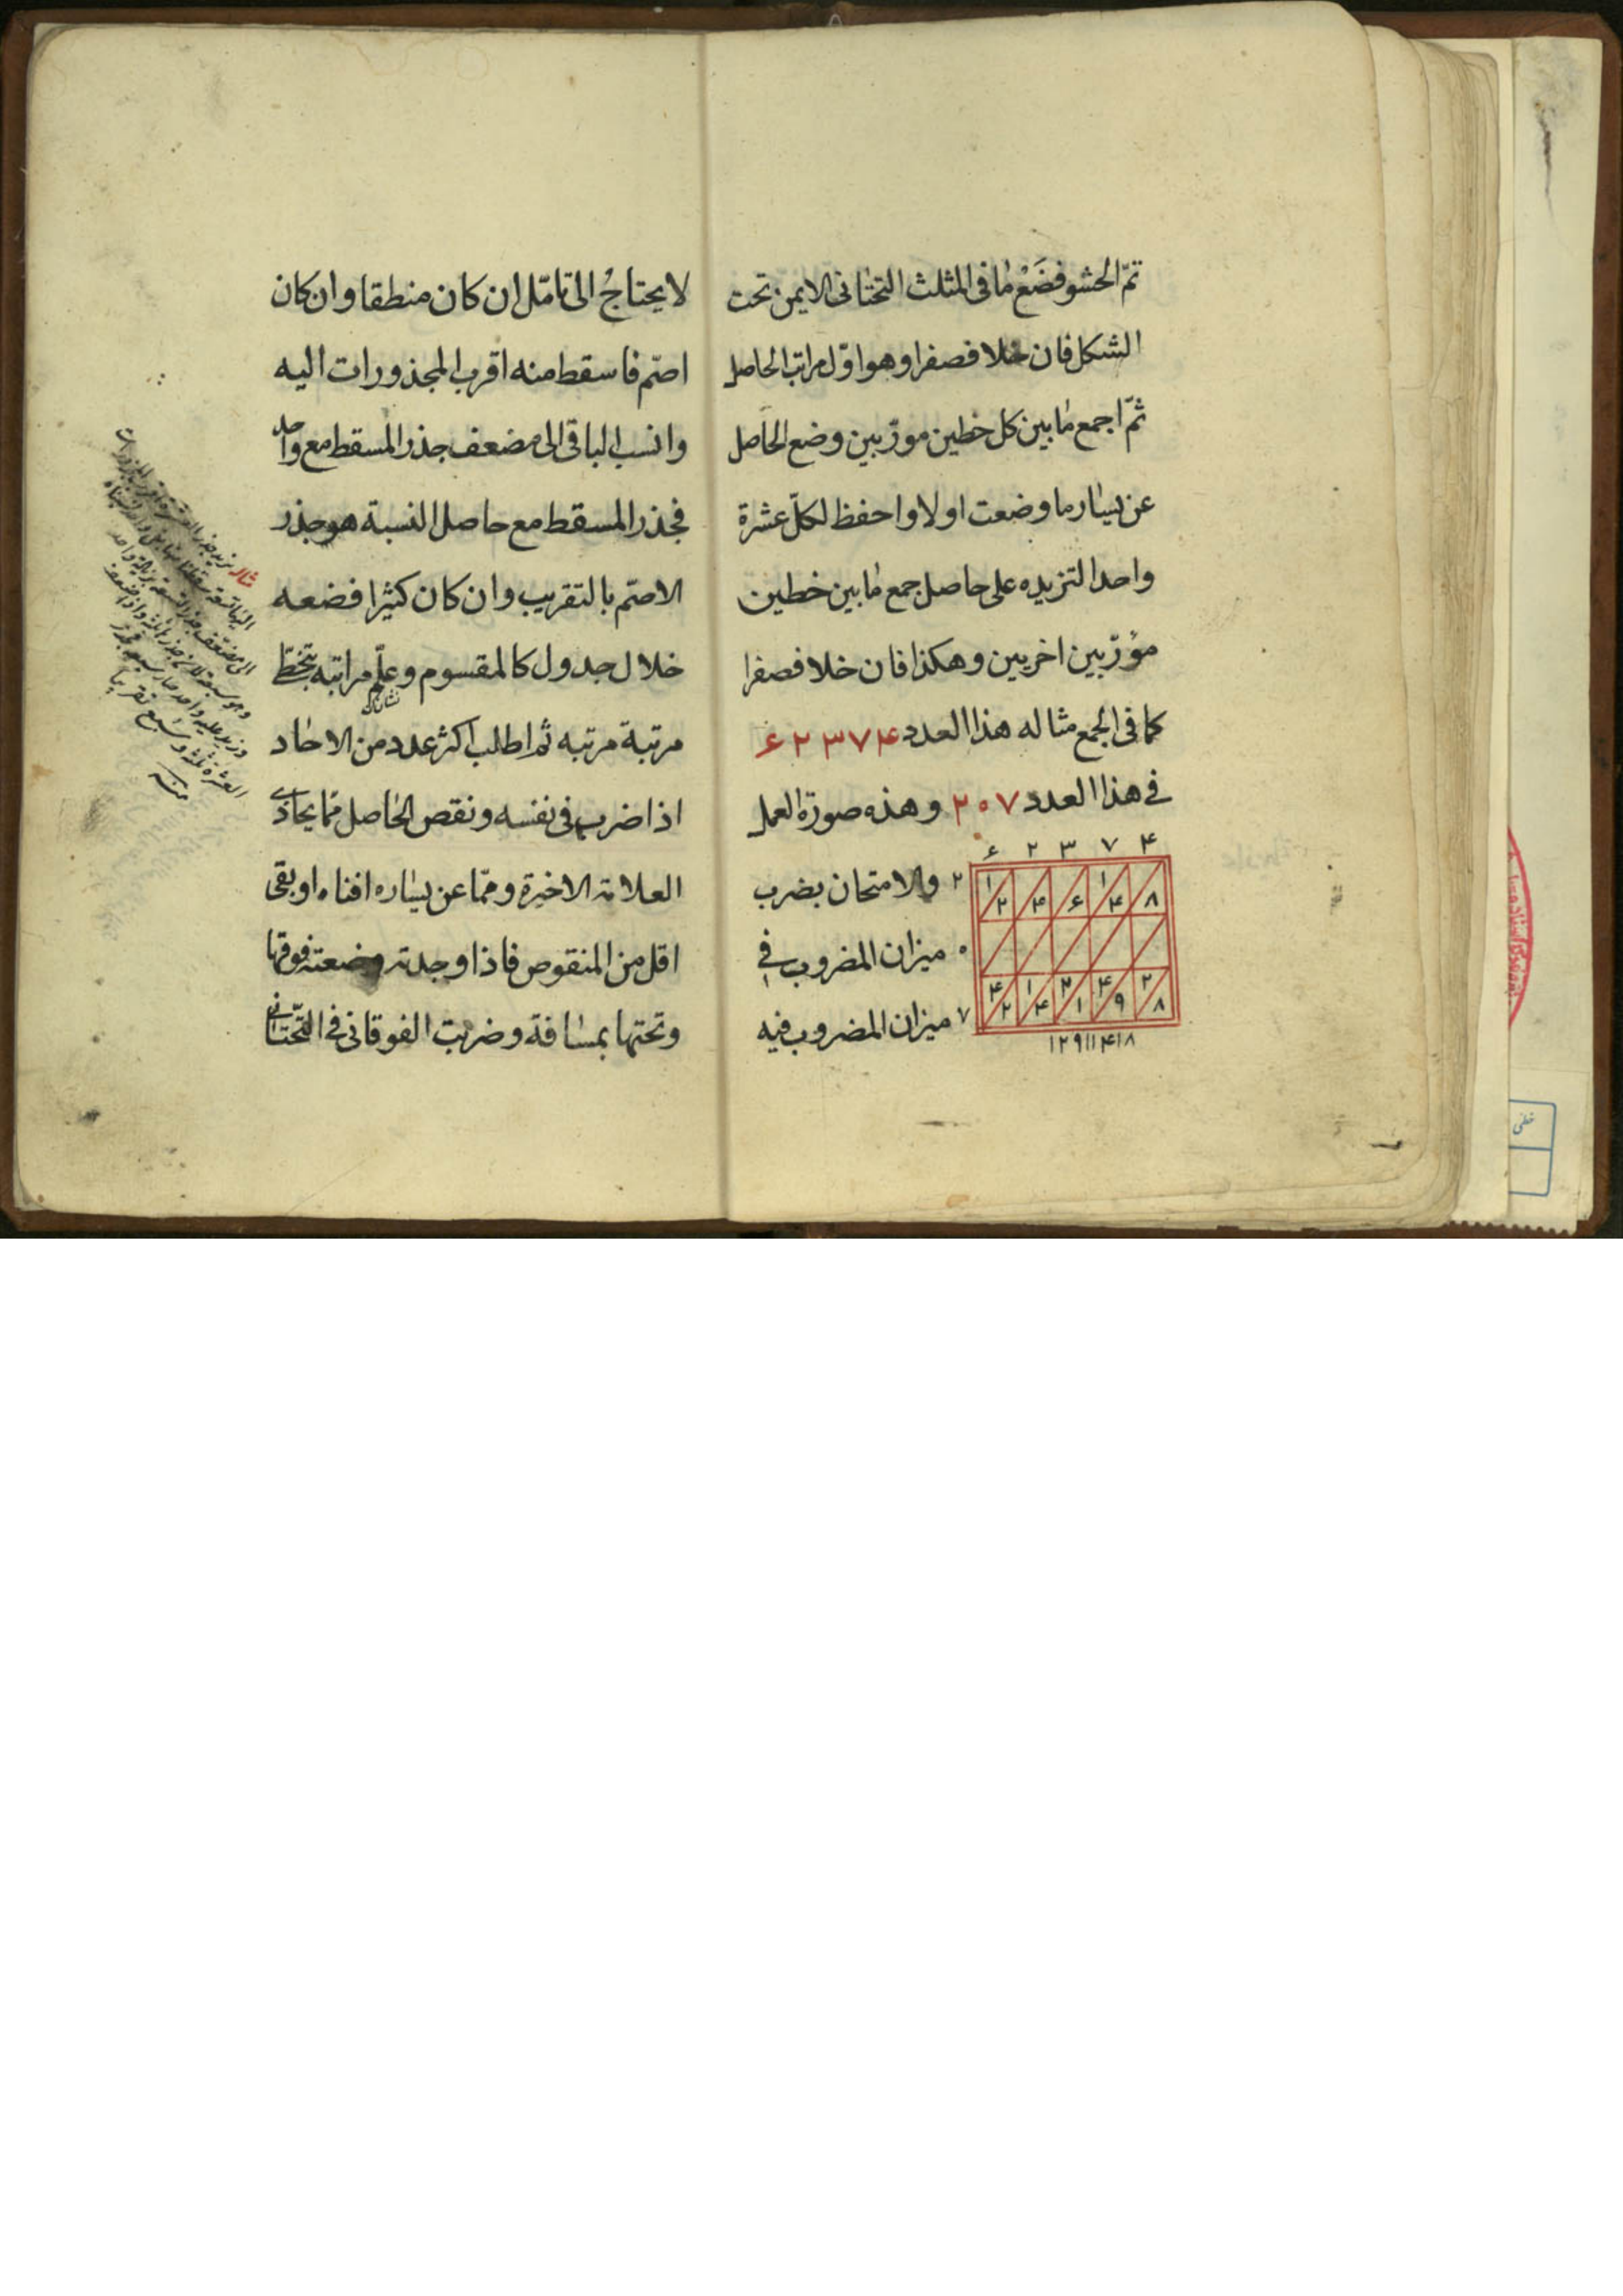 تمّ الحشو فضَعْ ما فى المثلث التحتانى الايمن تحت
الشكل فان خلا فصفرا وهو اوّل مراتب الحاصل
ثمّ اجمع ما بين كل خطين مورّبين وضع الحاصل
عن يسار ما وضعت اولا واحفظ لكلّ عشرة
واحدا لتزيده على حاصل جمع ما بين خطين
مورّبين اخريين وهكذا فان خلا فصفرا
كما فى الجمع مثاله هذا العدد ۶۲۳۷۴
فى هذا العدد ۲۰۷ وهذه صورة العمل
۶ ۲ ۳ ۷ ۴
والامتحان بضرب ۲
۱ ۱
۲ ۴ ۶ ۴ ۸
ميزان المضروب فى ۰
۴ ۱ ۲ ۴ ۲
۲ ۴ ۱ ۹ ۸
ميزان المضروب فيه ۷
۱۲۹۱۱۴۱۸
لا يحتاجُ الى تامّل ان كان منطقا وان كان
اصمّ فاسقط منه اقرب المجذورات اليه
وانسب الباقى الى مضعف جذر المسقط مع واحد
فجذر المسقط مع حاصل النسبة هو جذر
الاصمّ بالتقريب وان كان كثيرا فضعه
خلال جدول كالمقسوم وعلّم مراتبه بتخطّى
مرتبة مرتبه ثم اطلب اكثر عدد من الاحاد
اذا ضرب فى نفسه ونقص الحاصل مما يحاذى
العلامة الاخيرة وممّا عن يساره افناه او بقى
اقل من المنقوص فاذا وجدته وضعته فوقها
وتحتها بمسافة وضربت الفوقانى فى التحتانى
مثاله نريد جذر العشرة